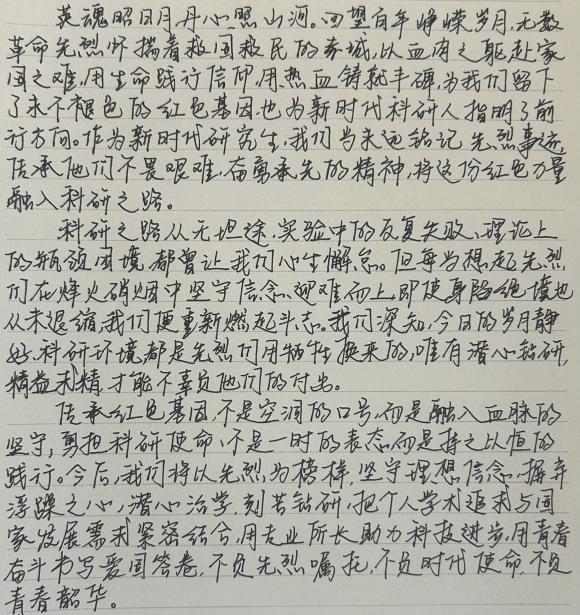 英魂昭日月,丹心照山河。回望百年峥嵘岁月,无数
革命先烈怀揣着救国救民的赤诚,以血肉之躯赴家
国之难,用生命践行信仰,用热血铸就丰碑,为我们留下
了永不褪色的红色基因,也为新时代科研人指明了前
行方向。作为新时代研究生,我们当永远铭记先烈事迹,
传承他们不畏艰难、奋勇承先的精神,将这份红色力量
融入科研之路。
科研之路从无坦途,实验中的反复失败、理论上
的瓶颈困境,都曾让我们心生懈怠。但每当想起先烈
们在烽火硝烟中坚守信念、迎难而上,即使身陷绝境也
从未退缩,我们便重新燃起斗志。我们深知,今日的岁月静
好、科研环境都是先烈们用牺牲换来的,唯有潜心钻研,
精益求精,才能不辜负他们的付出。
传承红色基因,不是空洞的口号,而是融入血脉的
坚守,勇担科研使命,不是一时的表态,而是持之以恒的
践行。今后,我们将以先烈为榜样,坚守理想信念,摒弃
浮躁之心,潜心治学,刻苦钻研,把个人学术追求与国
家发展需求紧密结合,用专业所长助力科技进步,用青春
奋斗书写爱国答卷,不负先烈嘱托,不负时代使命,不负
青春韶华。